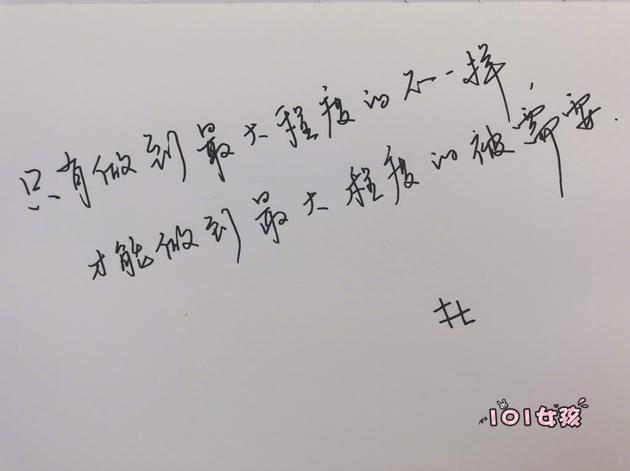 只有做到最大程度的不一样,
才能做到最大程度的被需要.
101女孩